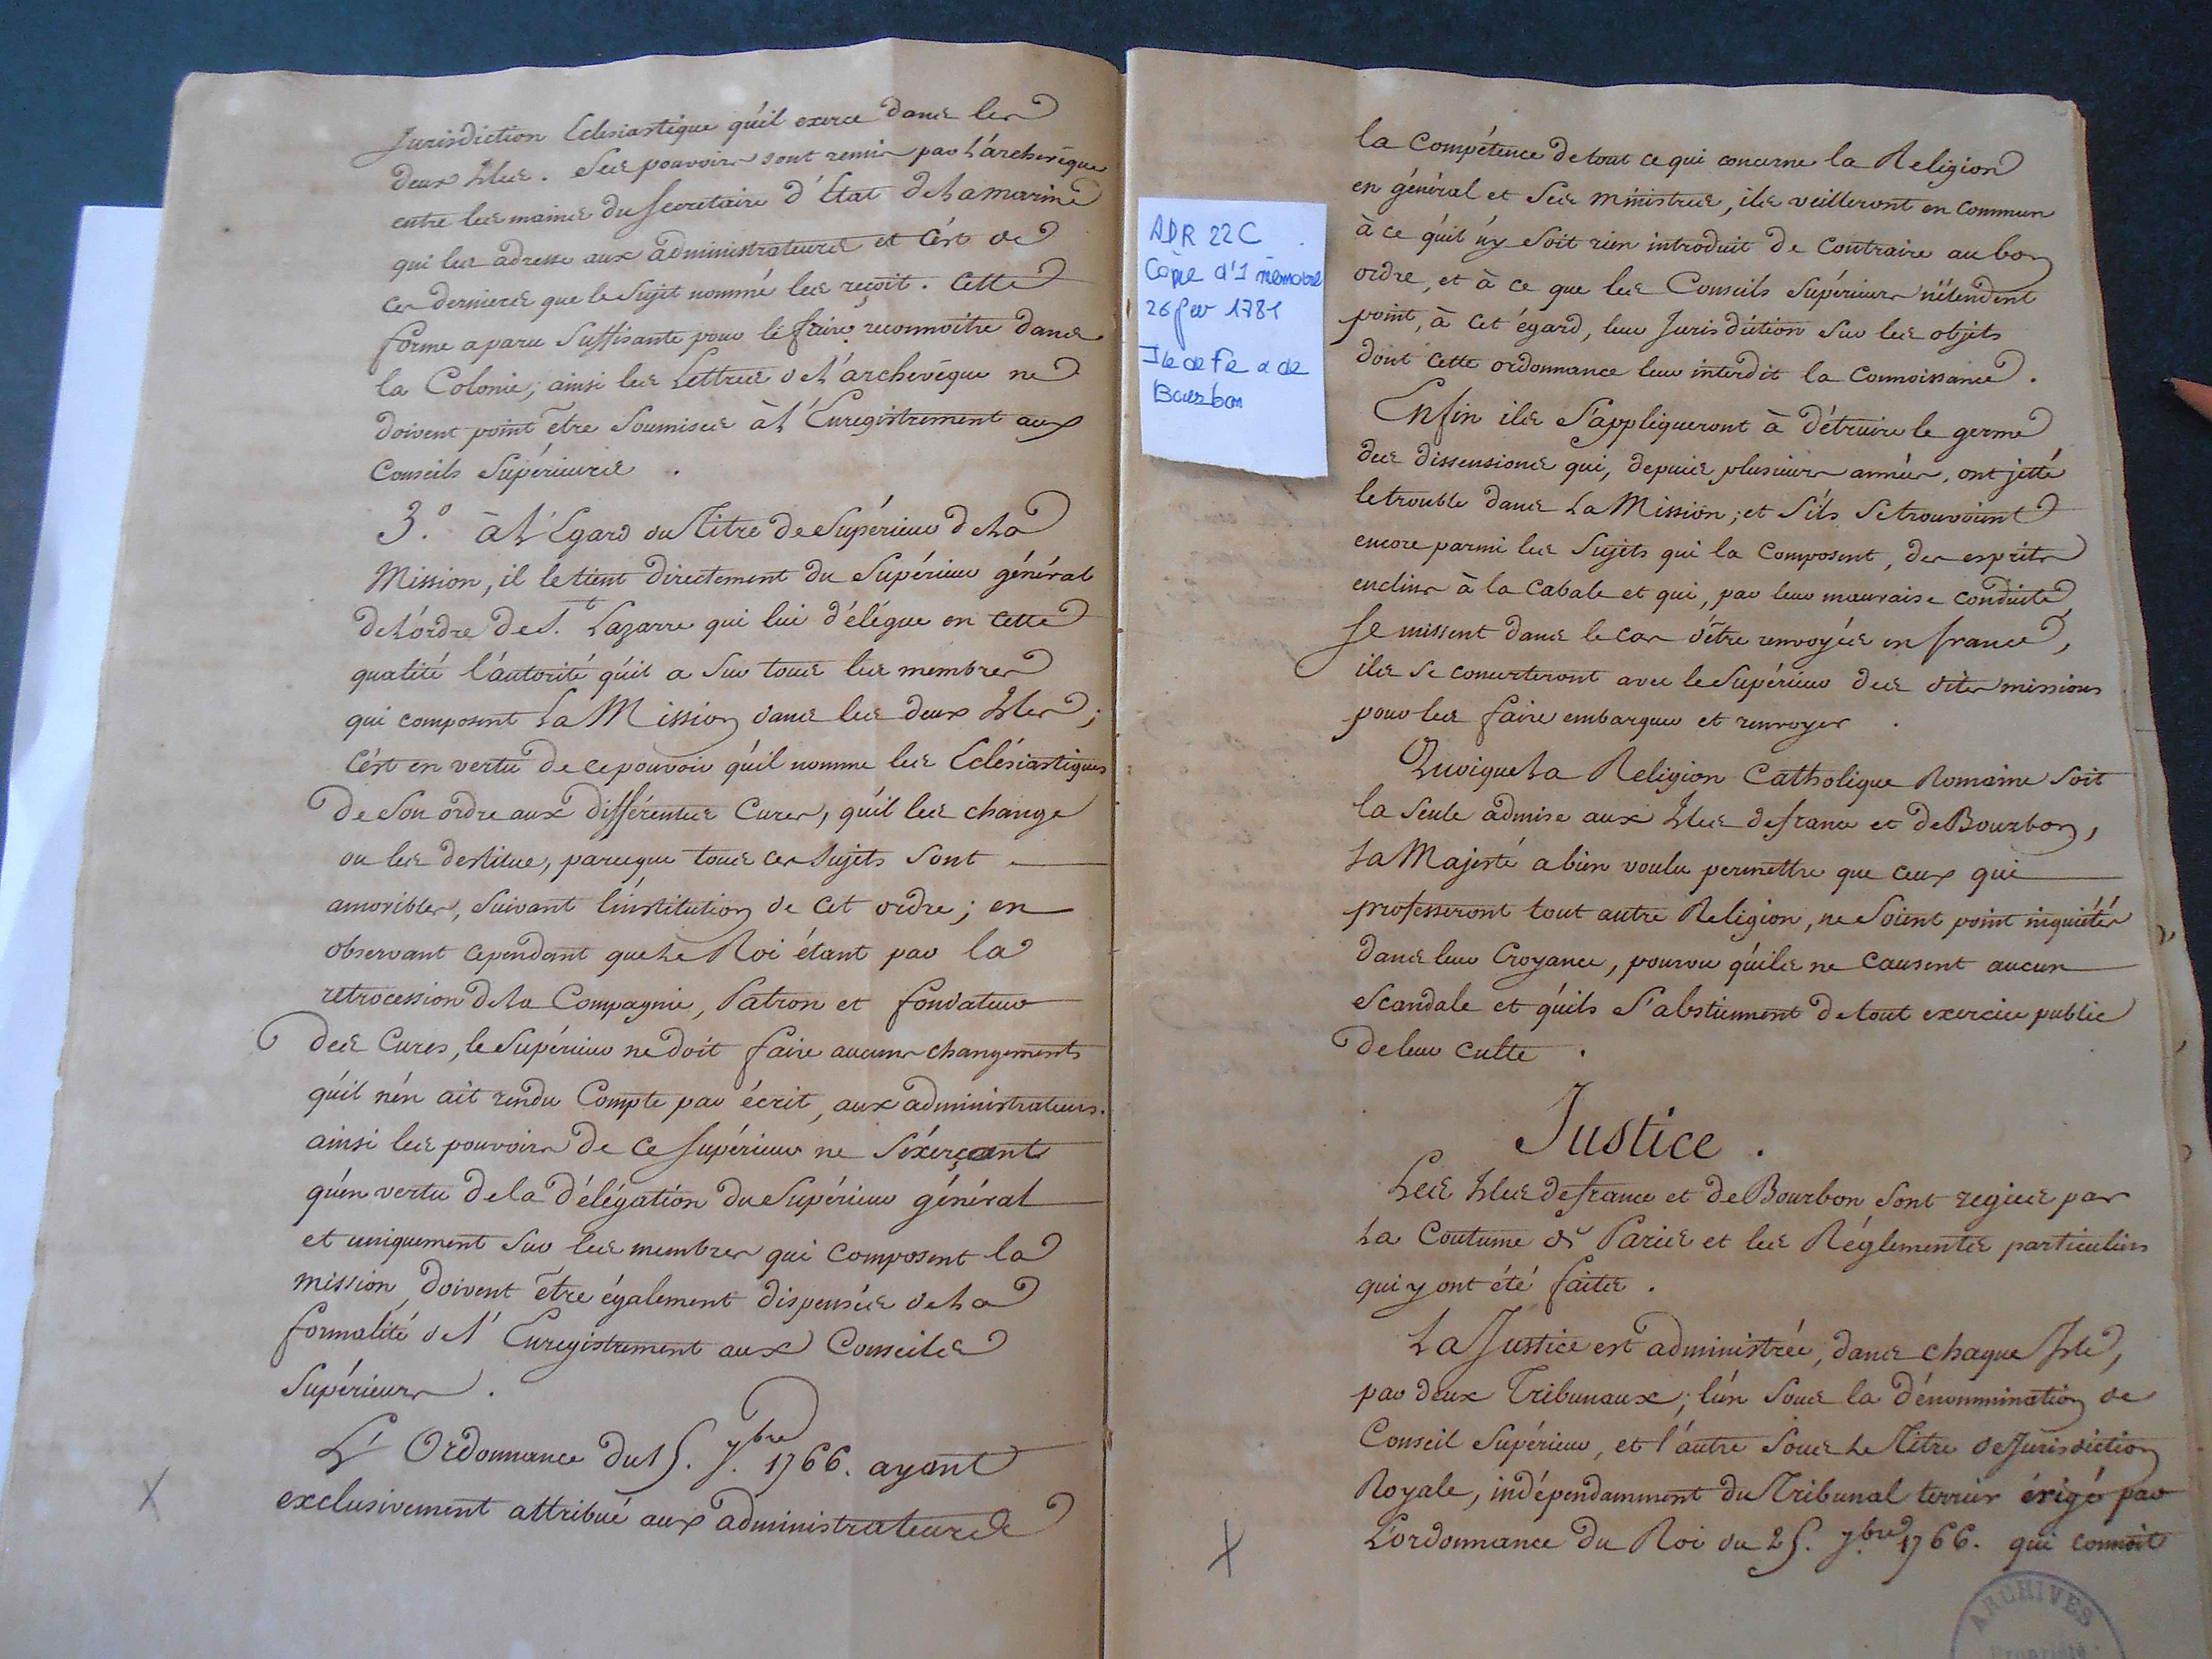 Jurisdiction Eclesiastique qu'il exerce dans les
deux Isles. Ses pouvoirs sont remis par l'archevêque
entre les mains du Secretaire d'État de la marine
qui les adresse aux administrateurs et c'est de
ces derniers que le Sujet nommé les reçoit. Cette
forme a paru Suffisante pour le faire reconnoitre dans
la Colonie; ainsi les Lettres de l'archevêque ne
doivent point être Soumises à l'Enregistrement aux
Conseils Supérieurs.
3.º à l'Egard du Titre de Supérieur de la
Mission, il le tient directement du Supérieur général
de l'ordre de S.t Lazarre qui lui délégue en cette
qualité l'autorité qu'il a Sur tous les membres
qui composent la Mission dans les deux Isles;
C'est en vertu de ce pouvoir qu'il nomme les Eclésiastiques
de Son ordre aux différentes Cures, qu'il les change
ou les destitue, parceque tous ces Sujets Sont
amovibles, Suivant l'institution de cet ordre; en
observant cependant que le Roi étant par la
retrocession de la Compagnie, Patron et fondateur
des Cures, le Supérieur ne doit faire aucuns changements
qu'il n'en ait rendu Compte par écrit, aux administrateurs.
ainsi les pouvoirs de ce Supérieur ne S'éxerçant
qu'en vertu de la délégation du Supérieur général
et uniquement Sur les membres qui composent la
mission, doivent être également dispensés de la
formalité de l'Enregistrement aux Conseils
Supérieurs.
L'Ordonnance du 25. 7.bre 1766. ayant
exclusivement attribué aux administrateurs
ADR 22C
Copie d'1 mémoire
26 fev 1781
Ile de Fe & de
Bourbon
la Compétence de tout ce qui concerne la Religion
en général et Ses Ministres, ils veilleront en commun
à ce qu'il n'y Soit rien introduit de Contraire au bon
ordre, et à ce que les Conseils Supérieurs n'étendent
point, à cet égard, leur Jurisdiction Sur les objets
dont cette ordonnance leur interdit la Connoissance.
Enfin ils S'appliqueront à détruire le germe
des dissensions qui, depuis plusieurs années, ont jetté
le trouble dans la Mission; et S'ils Se trouvoient
encore parmi les Sujets qui la Composent, des esprits
enclins à la Cabale et qui, par leur mauvaise conduite,
Se missent dans le cas d'être renvoyés en france,
ils Se concerteront avec le Supérieur des dites missions
pour les faire embarquer et renvoyer.
Quoique la Religion Catholique Romaine Soit
la Seule admise aux Isles de france et de Bourbon,
Sa Majesté a bien voulu permettre que ceux qui
professeront tout autre Religion, ne Soient point inquiétés
dans leur Croyance, pourvu qu'ils ne Causent aucun
Scandale et qu'ils S'abstiennent de tout exercice public
de leur culte.
Justice.
Les Isles de france et de Bourbon Sont regies par
la Coutume de Paris et les Réglements particuliers
qui y ont été faits.
La Justice est administrée, dans chaque Isle,
par deux Tribunaux; l'un Sous la dénommination de
Conseil Supérieur, et l'autre Sous le Titre de Jurisdiction
Royale, indépendamment du Tribunal terrier érigé par
L'ordonnance du Roi du 25. 7.bre 1766. qui connoit
ARCHIVES